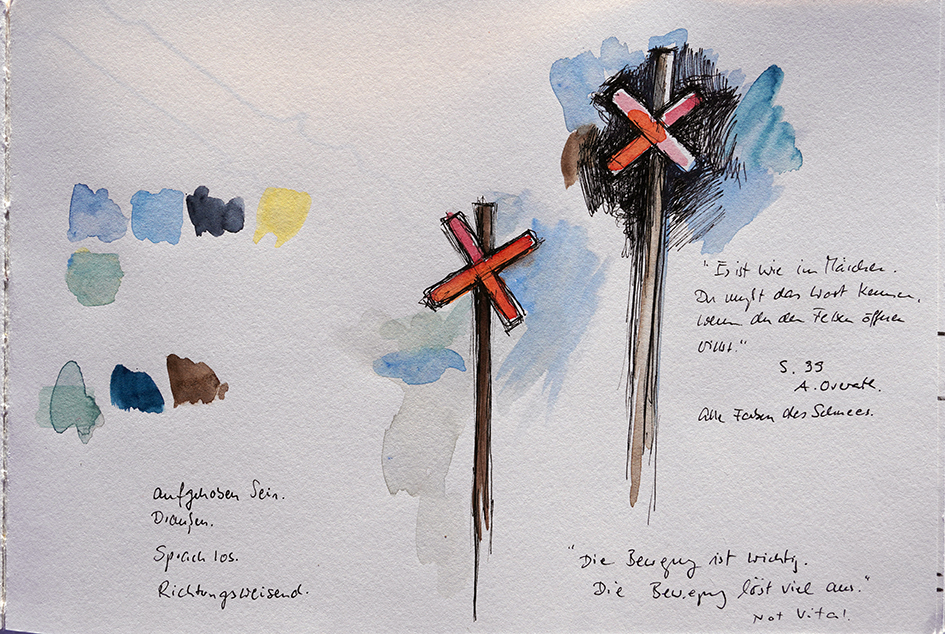 "Es ist wie im Märchen.
Du mußt das Wort kennen,
wenn du den Felsen öffnen
willst."
S. 99
A. Overath.
Alle Farben des Schnees.
aufgehoben Sein.
Draußen.
Sprachlos.
Richtungsweisend.
"Die Bewegung ist wichtig.
Die Bewegung löst viel aus."
Not Vital.